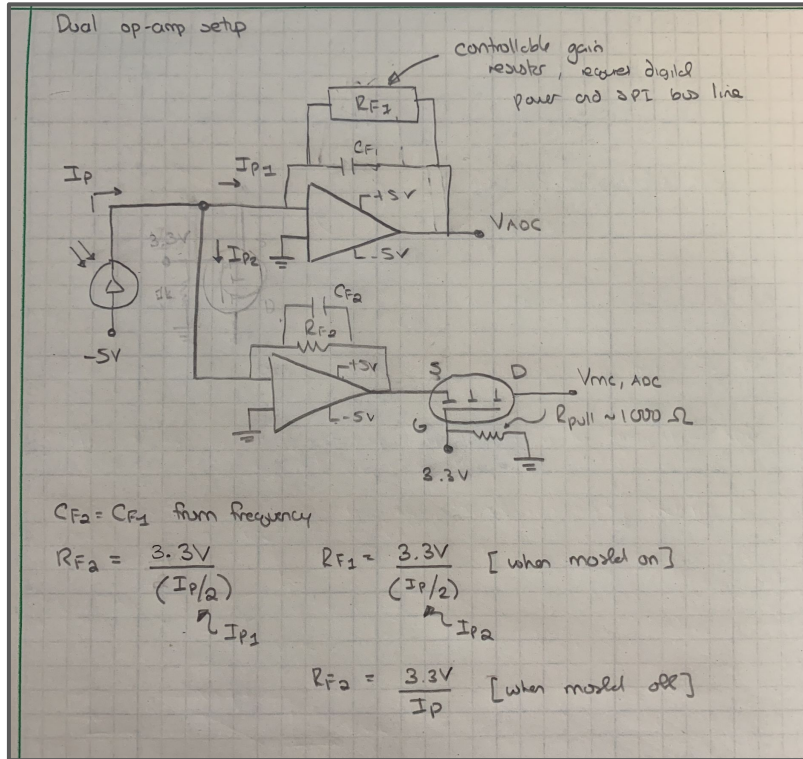 Dual op-amp setup
controllable gain
resistor, requires digital
power and SPI bus line
RF1
CF1
Ip
Ip1
+5V
-5V
VADC
3.3V
Ip2
CF2
RF2
-5V
+5V
-5V
S
D
G
Vmc, ADC
Rpull ~1000 Ω
3.3V
CF2 = CF1 from frequency
RF2 = 3.3V / (Ip/2) RF1 = 3.3V / (Ip/2) [when mosfet on]
Ip1 Ip2
RF2 = 3.3V / Ip [when mosfet off]